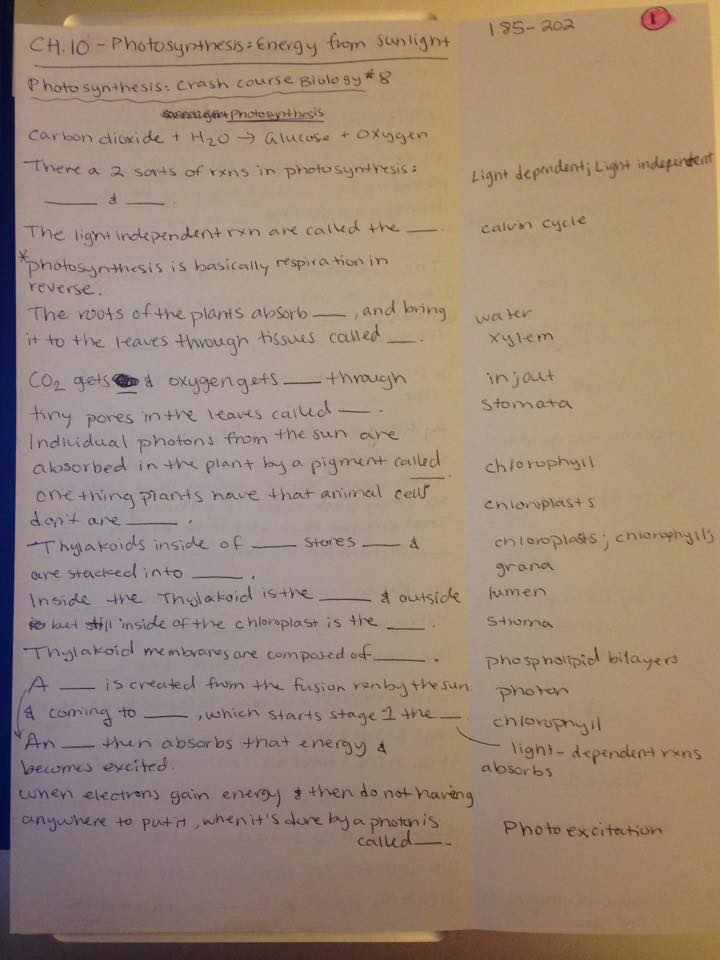 CH.10 - Photosynthesis: Energy from sunlight
185-202
1
Photosynthesis: Crash course Biology #8
Photosynthesis
Carbon dioxide + H₂O → Glucose + Oxygen
There a 2 sorts of rxns in photosynthesis:
Light dependent; Light independent
____ & ____.
The light independent rxn are called the ___.
calvin cycle
*photosynthesis is basically respiration in
reverse.
The roots of the plants absorb ___, and bring
water
it to the leaves through tissues called ___.
xylem
CO₂ gets & oxygen gets ___ through
in; out
tiny pores in the leaves called ___.
Stomata
Individual photons from the sun are
absorbed in the plant by a pigment called ___
chlorophyll
one thing plants have that animal cells
don't are ____.
chloroplasts
Thylakoids inside of ____ stores ____ &
chloroplasts; chlorophyll;
are stacked into ____.
grana
Inside the Thylakoid is the ____ & outside
lumen
but still inside of the chloroplast is the ____.
stroma
Thylakoid membranes are composed of ____.
phospholipid bilayers
A ___ is created from the fusion rxn by the sun
photon
& coming to ____, which starts stage 1 the __
chlorophyll
light-dependent rxns
An ___ then absorbs that energy &
absorbs
becomes excited.
when electrons gain energy & then do not having
anywhere to put it, when it's done by a photon is
called ___.
Photoexcitation